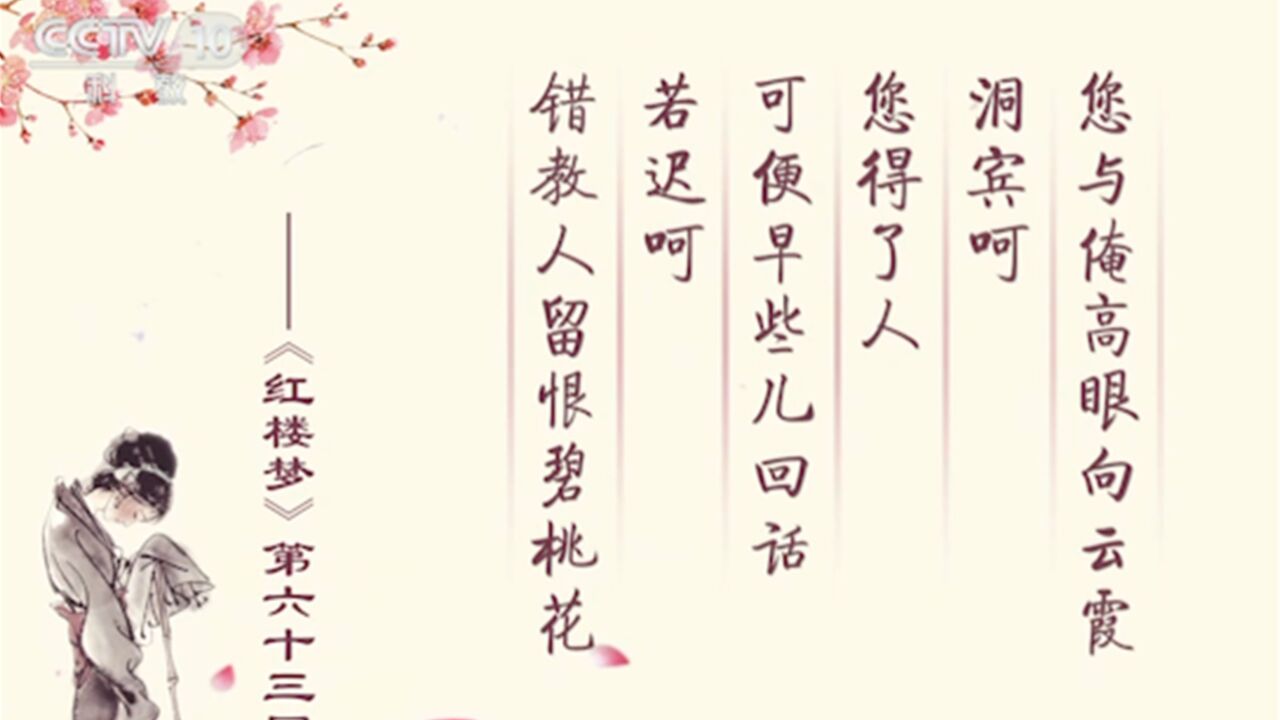 CCTV 10
科教
您与俺高眼向云霞
洞宾呵
您得了人
可便早些儿回话
若迟呵
错教人留恨碧桃花
——《红楼梦》第六十三回